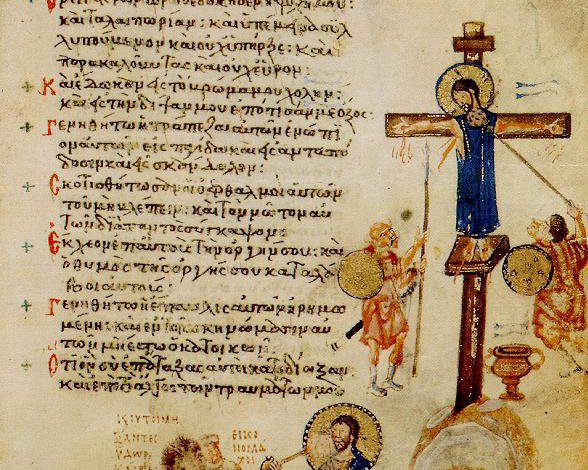 καὶ ταλαιπωρίαν· καὶ ὑπέμεινα συλ
λυπούμενον καὶ οὐχ ὑπῆρξε· καὶ
παρακαλοῦντας καὶ οὐχ εὗρον·
Καὶ ἔδωκαν εἰς τὸ βρῶμά μου χολήν·
καὶ εἰς τὴν δίψαν μου ἐπότισάν με ὄξος·
Γενηθήτω ἡ τράπεζα αὐτῶν ἐνώπι
ον αὐτῶν εἰς παγίδα καὶ εἰς ἀνταπό
δοσιν καὶ εἰς σκάνδαλον·
Σκοτισθήτωσαν οἱ ὀφθαλμοὶ αὐτῶν
τοῦ μὴ βλέπειν· καὶ τὸν νῶτον αὐ
τῶν διὰ παντὸς σύγκαμψον·
Ἔκχεον ἐπ' αὐτοὺς τὴν ὀργήν σου· καὶ
ὁ θυμὸς τῆς ὀργῆς σου καταλά
βοι αὐτούς·
Γενηθήτω ἡ ἔπαυλις αὐτῶν ἠρημω
μένη· καὶ ἐν τοῖς σκηνώμασιν αὐ
τῶν μὴ ἔστω ὁ κατοικῶν·
Ὅτι ὃν σὺ ἐπάταξας αὐτοὶ κατεδίωξαν·
καὶ ἐπὶ τὸ ἄλγος τῶν τραυμάτων μου